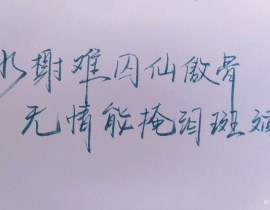 水榭难囚仙傲骨
无情能掩泪斑斑